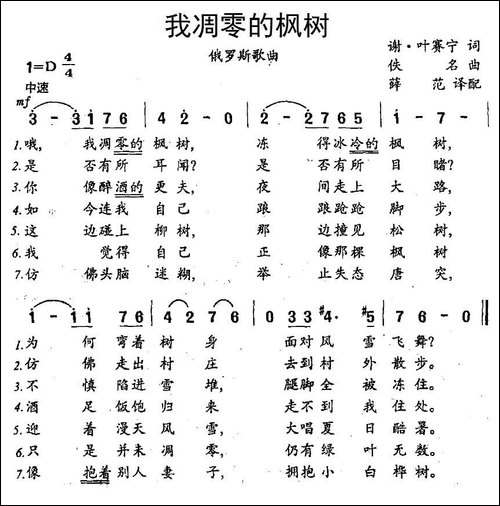 我凋零的枫树
俄罗斯歌曲
谢·叶赛宁 词
佚 名 曲
薛 范 译配
1=D 4/4
中速
mf
3 - 3 1 7 6 | 4 2 - 0 | 2 - 2 7 6 5 | 1 - 7 - |
1.哦, 我凋零的 枫 树, 冻 得冰冷的 枫 树,
2.是 否有所 耳 闻? 是 否有所 目 睹?
3.你 像醉酒的 更 夫, 夜 间走上 大 路,
4.如 今连我 自 己 踉 踉跄跄 脚 步,
5.这 边碰上 柳 树, 那 边撞见 松 树,
6.我 觉得 自 己 正 像那棵 枫 树
7.仿 佛头脑 迷 糊, 举 止失态 唐 突,
1 - 1 1 7 6 | 4 2 7 6 | 0 0 3 3 #4· #5 | 7 6 - 0 :‖
1.为 何 弯着 树 身 面对 风 雪 飞 舞?
2.仿 佛 走出 村 庄 去到 村 外 散 步。
3.不 慎 陷进 雪 堆, 腿脚 全 被 冻 住。
4.酒 足 饭饱 归 来 走不 到 我 住 处。
5.迎 着 漫天 风 雪, 大唱 夏 日 酷 暑。
6.只 是 并未 凋 零, 仍有 绿 叶 无 数。
7.像 抱着 别人 妻 子, 拥抱 小 白 桦 树。